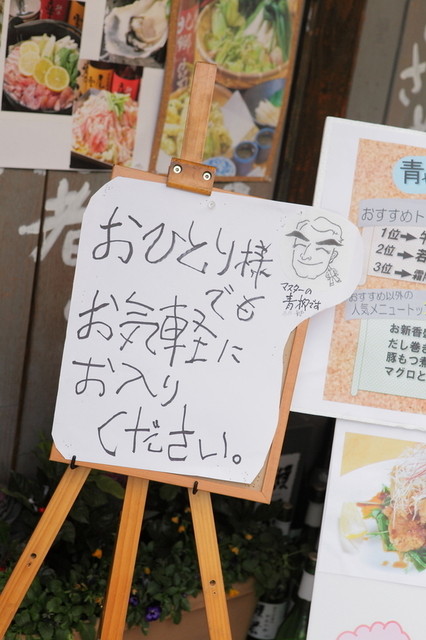 おひとり様
でも
お気軽に
お入り
ください。
マスターの
です
青
おすすめト
1位→
2位→
3位→
おすすめ以外の
人気メニュートッ
お新香
だし巻き
豚もつ煮
マグロと